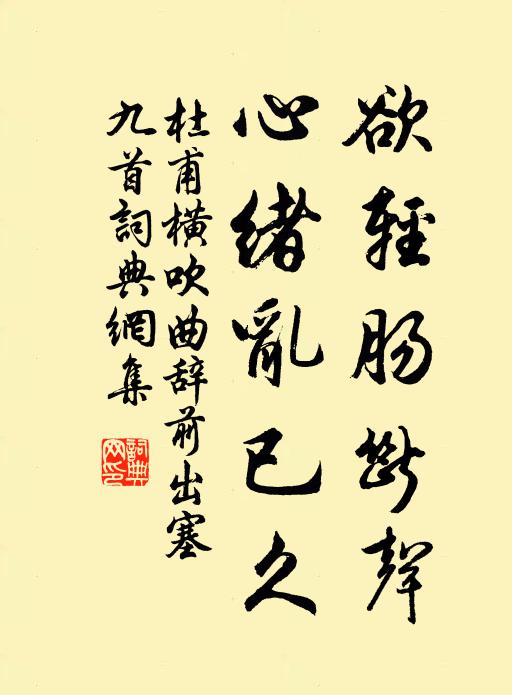 欲輕腸斷聲
心緒亂已久
杜甫橫吹曲辞前出塞
九首詞典網集
詞典
网印